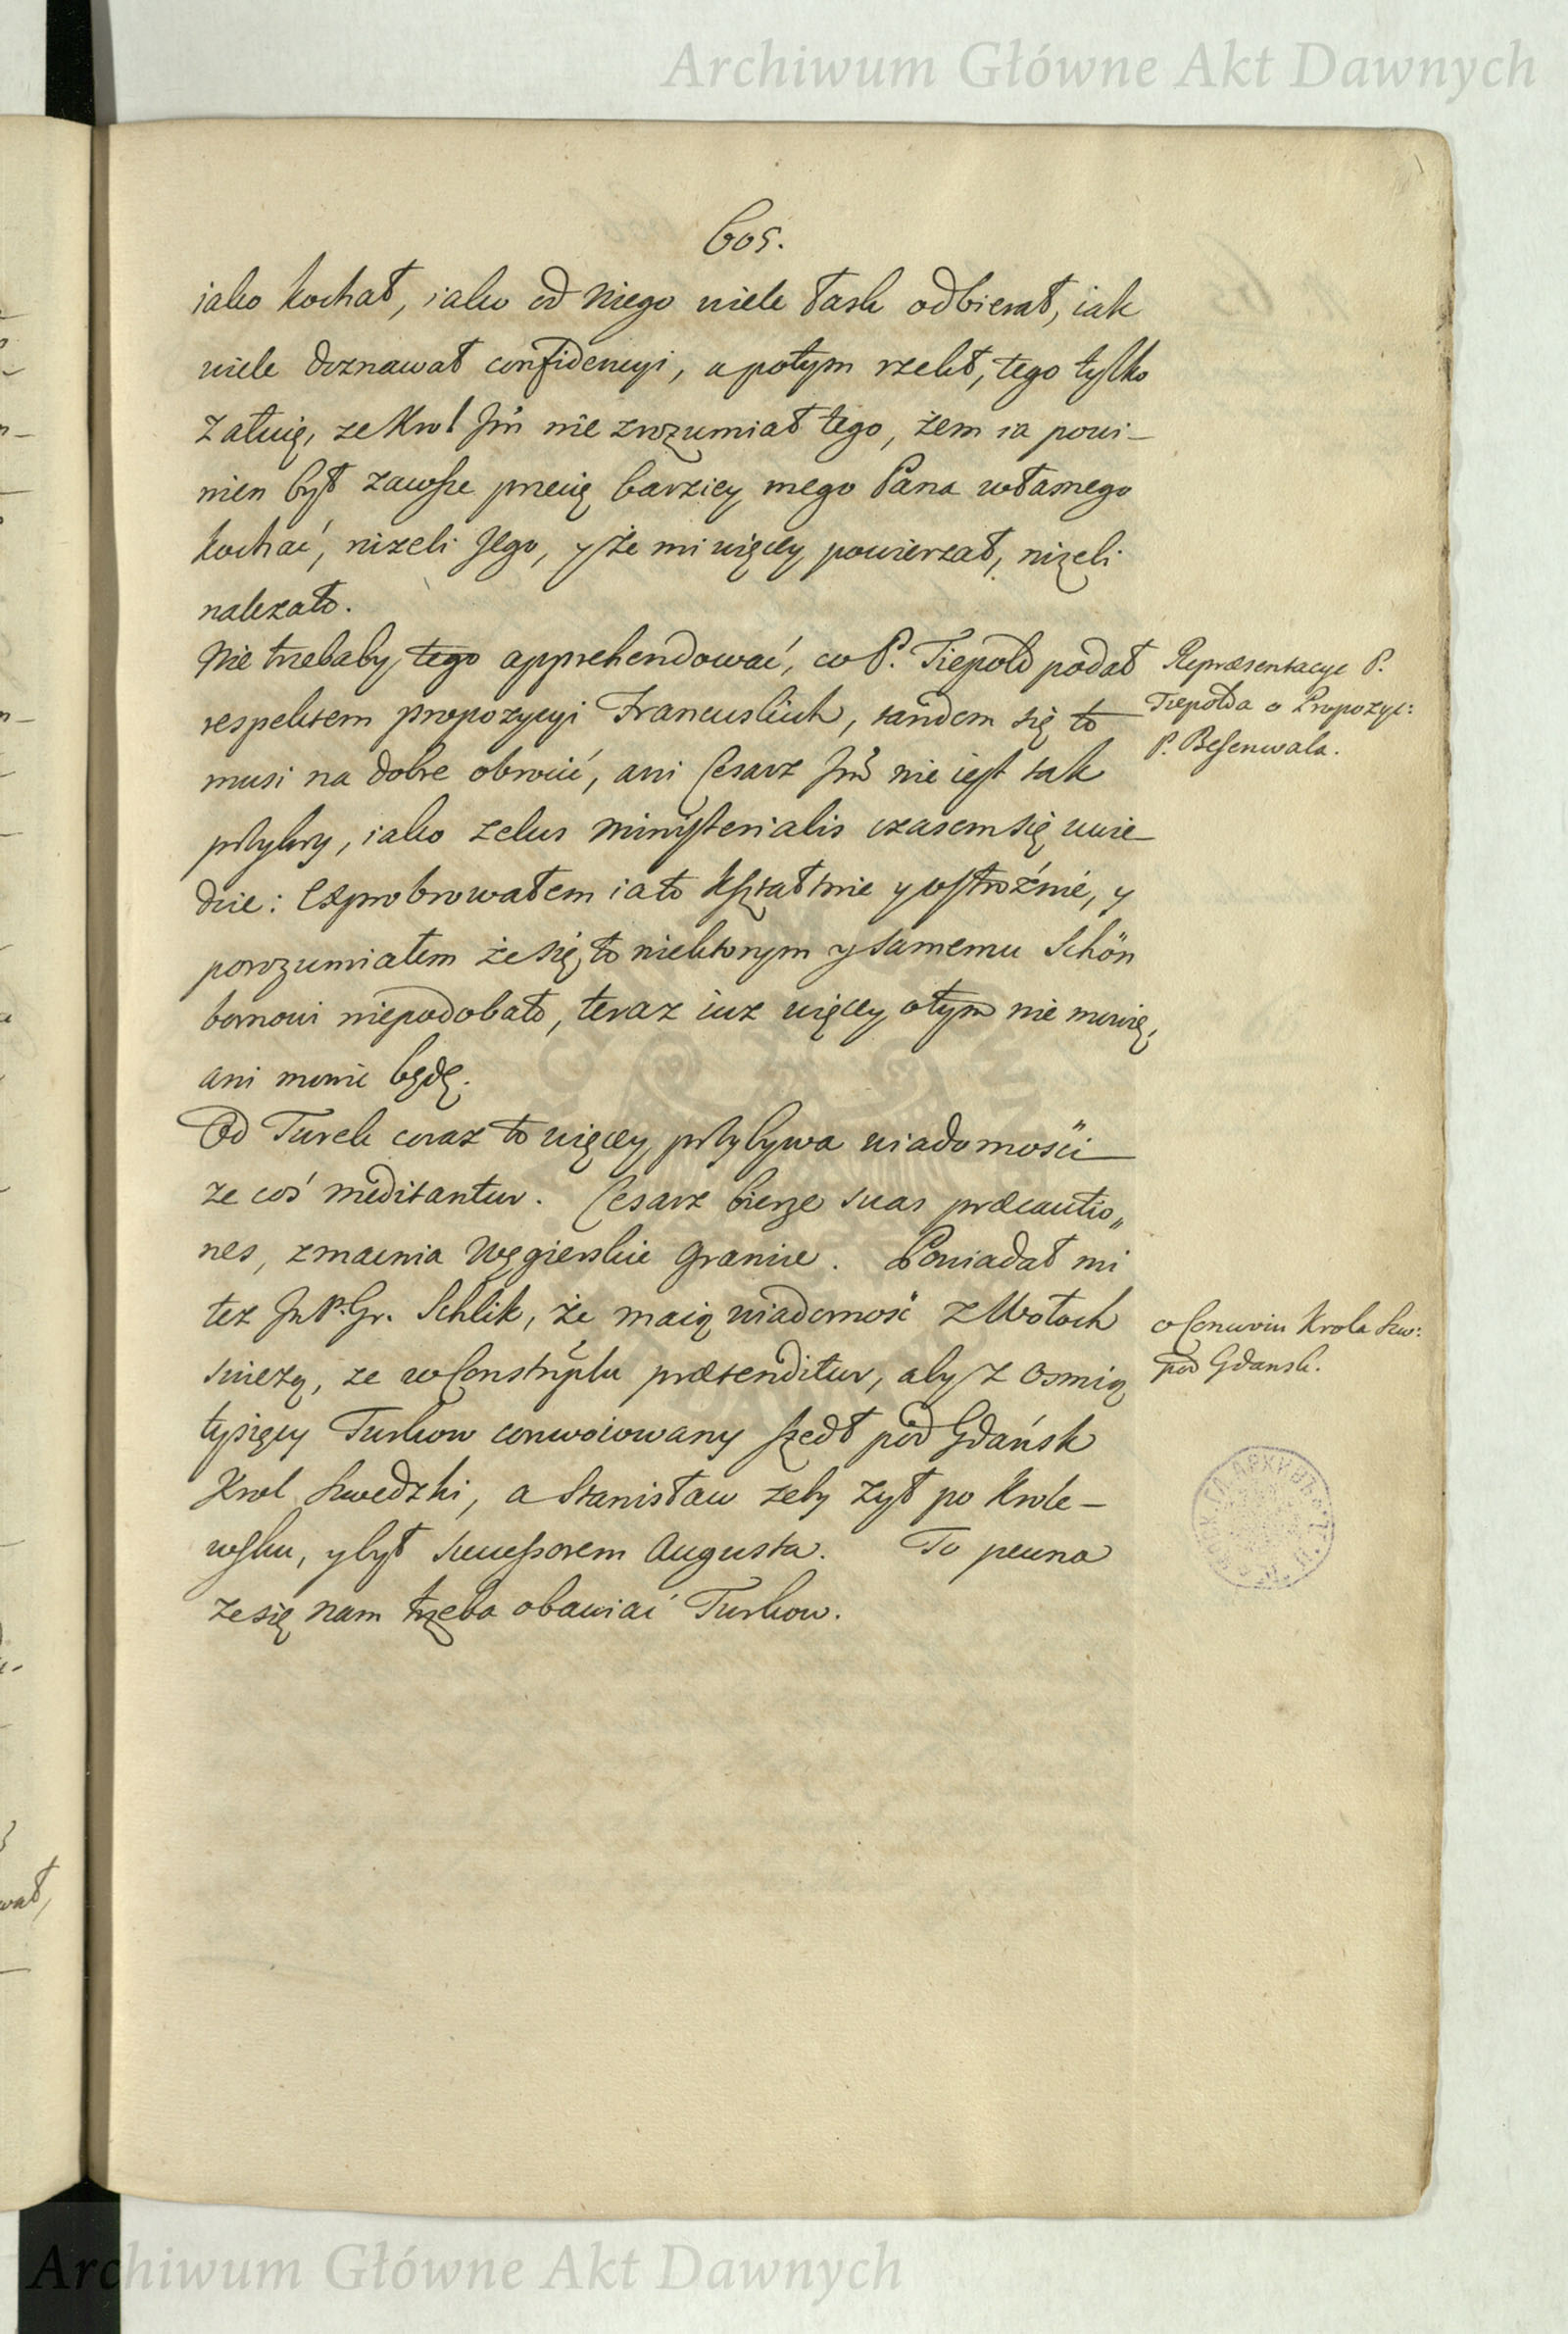 Archiwum Główne Akt Dawnych
605.
iako kochał, iako od Niego wiele łask odbierał, iak
wiele doznawał confidencyi, a potym rzekł, tego tylko
załuię, ze Krol Jm̃ nie zrozumiał tego, żem ia powi-
nien był zawsze precię barziey mego Pana własnego
kochać, nizeli Jego, y że mi więcey powierzał, niżeli
nalezało.
Nie trzebaby tego apprehendować, co P. Tiepold podał
respektem propozycyi Francuskich, tandem się to
musi na dobre obrocić, ani Cesarz Jm̃ nie iest tak
przykry, iako zelus ministerialis czasem się uwie-
dzie: Exprobrowałem ia to kształtnie y ostrożnie, y
porozumiałem że się to niektorym y samemu Schön
bornowi niepodobało, teraz iuz więcey o tym nie mowię,
ani mowić będę.
Od Turek coraz to więcey przybywa wiadomości
ze coś meditantur. Cesarz bierze suas præcautio„
nes, zmacnia Węgierskie Granice. Powiadał mi
tez Jm P. Gr. Schlik, że maią wiadomość z Wołoch
swiezą, ze w Constnplu prætenditur, aby z osmią
tysięcy Turkow conwoiowany szedł pod Gdańsk
Krol Szwedzki, a Stanisław zeby zył po Krole-
wsku, y był successorem Augusta. To pewna
ze się nam trzeba obawiać Turkow.
Repræsentacye P.
Tiepolda o Propozyc:
P. Besenwala.
o Conwoiu Krola Szw:
pod Gdansk.
Archiwum Główne Akt Dawnych